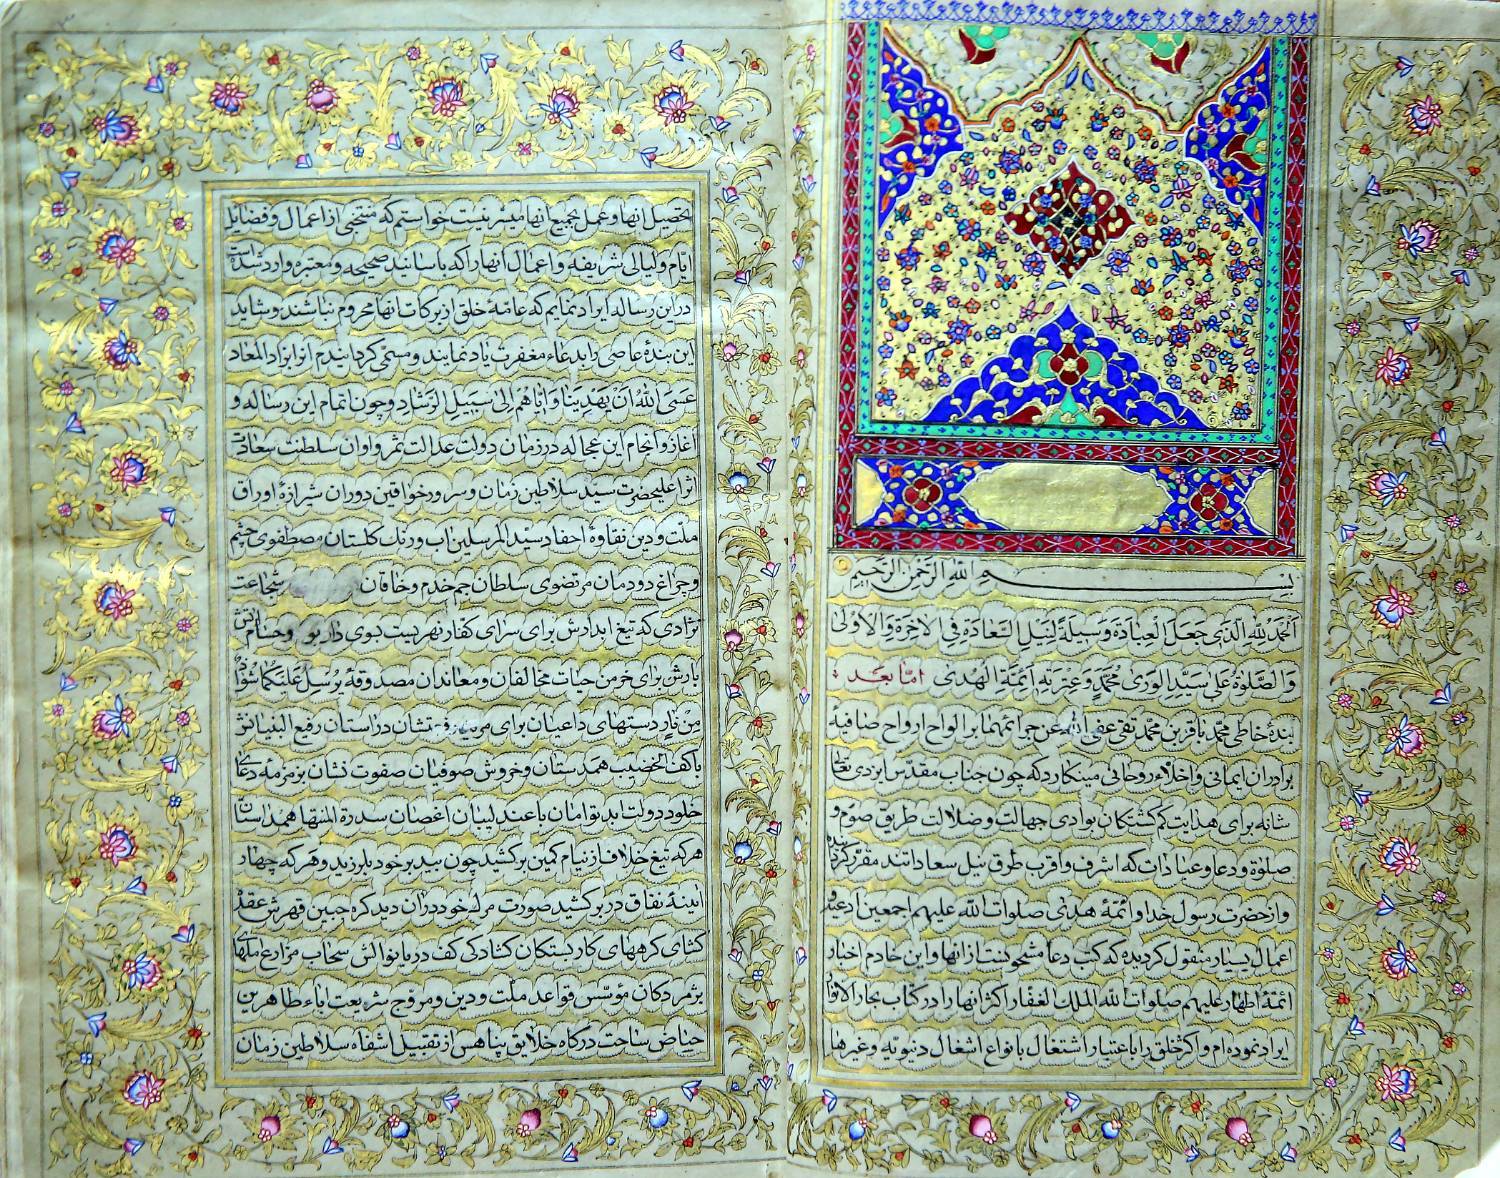 بسم الله الرحمن الرحیم
الحمد لله الذی جعل العبادة وسیلة لنیل السعادة فی الاخرة والاولی
والصلوة علی سید الوری محمد وعترته ائمة الهدی اما بعد
بندهٔ خاطی محمد باقر بن محمد تقی عفی الله عن جرائمهما بر الواح ارواح صافیهٔ
برادران ایمانی و اخلاء روحانی مینکارد که چون جناب مقدس ایزدی تعالی
شانه برای هدایت کم کشتکان بوادی جهالت و ضلالت طریق صوم و
صلوة و دعا و عبادات که اشرف و اقرب طرق نیل سعادانند مقرر کردانیده
و از حضرت رسول خدا و ائمهٔ هدی صلوات الله علیهم اجمعین ادعیه و
اعمال بسیار منقول کردیده که کتب دعا مشحونست از انها و این خادم اخبار
ائمهٔ اطهار علیهم صلوات الله الملک الغفار اکثر انها را در کتاب بحار الانوار
ایراد نموده ام و اکثر خلق را باعتبار اشتغال بانواع اشغال دنیویه و غیرها
تحصیل انها و عمل بجمیع انها میسر نیست خواستم که منتخبی از اعمال و فضایل
ایام و لیالی شریفه و اعمال انها را که باسانید صحیحه و معتبره وارد شده
در این رساله ایراد نمایم که عامهٔ خلق از برکات انها محروم نباشند و شاید
این بندهٔ عاصی را بدعاء مغفرت یاد نمایند و مسمی کردانیدم انرا بزاد المعاد
عسی الله ان یهدینا و ایاهم الی سبیل الرشاد و چون اتمام این رساله و
اغاز و انجام این عجاله در زمان دولت عدالت ثمر و اوان سلطنت سعادت
اثر اعلیحضرت سید سلاطین زمان و سرور خواقین دوران شرازهٔ اوراق
ملت و دین نقاوهٔ احفاد سید المرسلین اب و رنک کلستان مصطفوی چشم
و چراغ دودمان مرتضوی سلطان جم خدم و خاقان شجاعت
نژادی که تیغ ابدارش برای سرای کفار نهریست بسوی دار بوار و حسام اتش
بارش برای خرمن حیات مخالفان و معاندان مصدوقهٔ یرسل علیکما شواظ
من نار دستهای داعیان برای در استان رفیع البنیانش
با کف الخضیب همدستان و خروش صوفیان صفوت نشان بزمزمه دعای
خلود دولت ابد توامان با عندلیبان اغصان سدرة المنتها همداستان
هر که تیغ خلاف از نیام کمین برکشید چون بید بر خود بلرزید و هر که چهار
اینهٔ نفاق در بر کشید صورت مرک خود در ان دید کره جبین قهرش عقده
کشای کرههای کار بستکان کشادکی کف دریا نوالش سحاب مزارع املهای
پژمردکان مؤسس قواعد ملت و دین و مروج شریعت اباء طاهرین
حیاض ساحت درکاه خلایق پناهس از تقبیل اشفاه سلاطین زمان